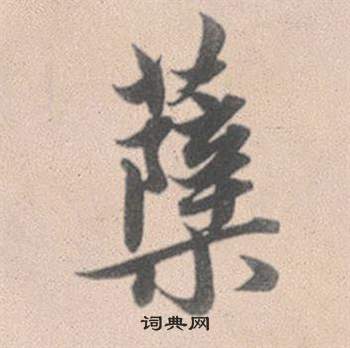 蘖
词典网